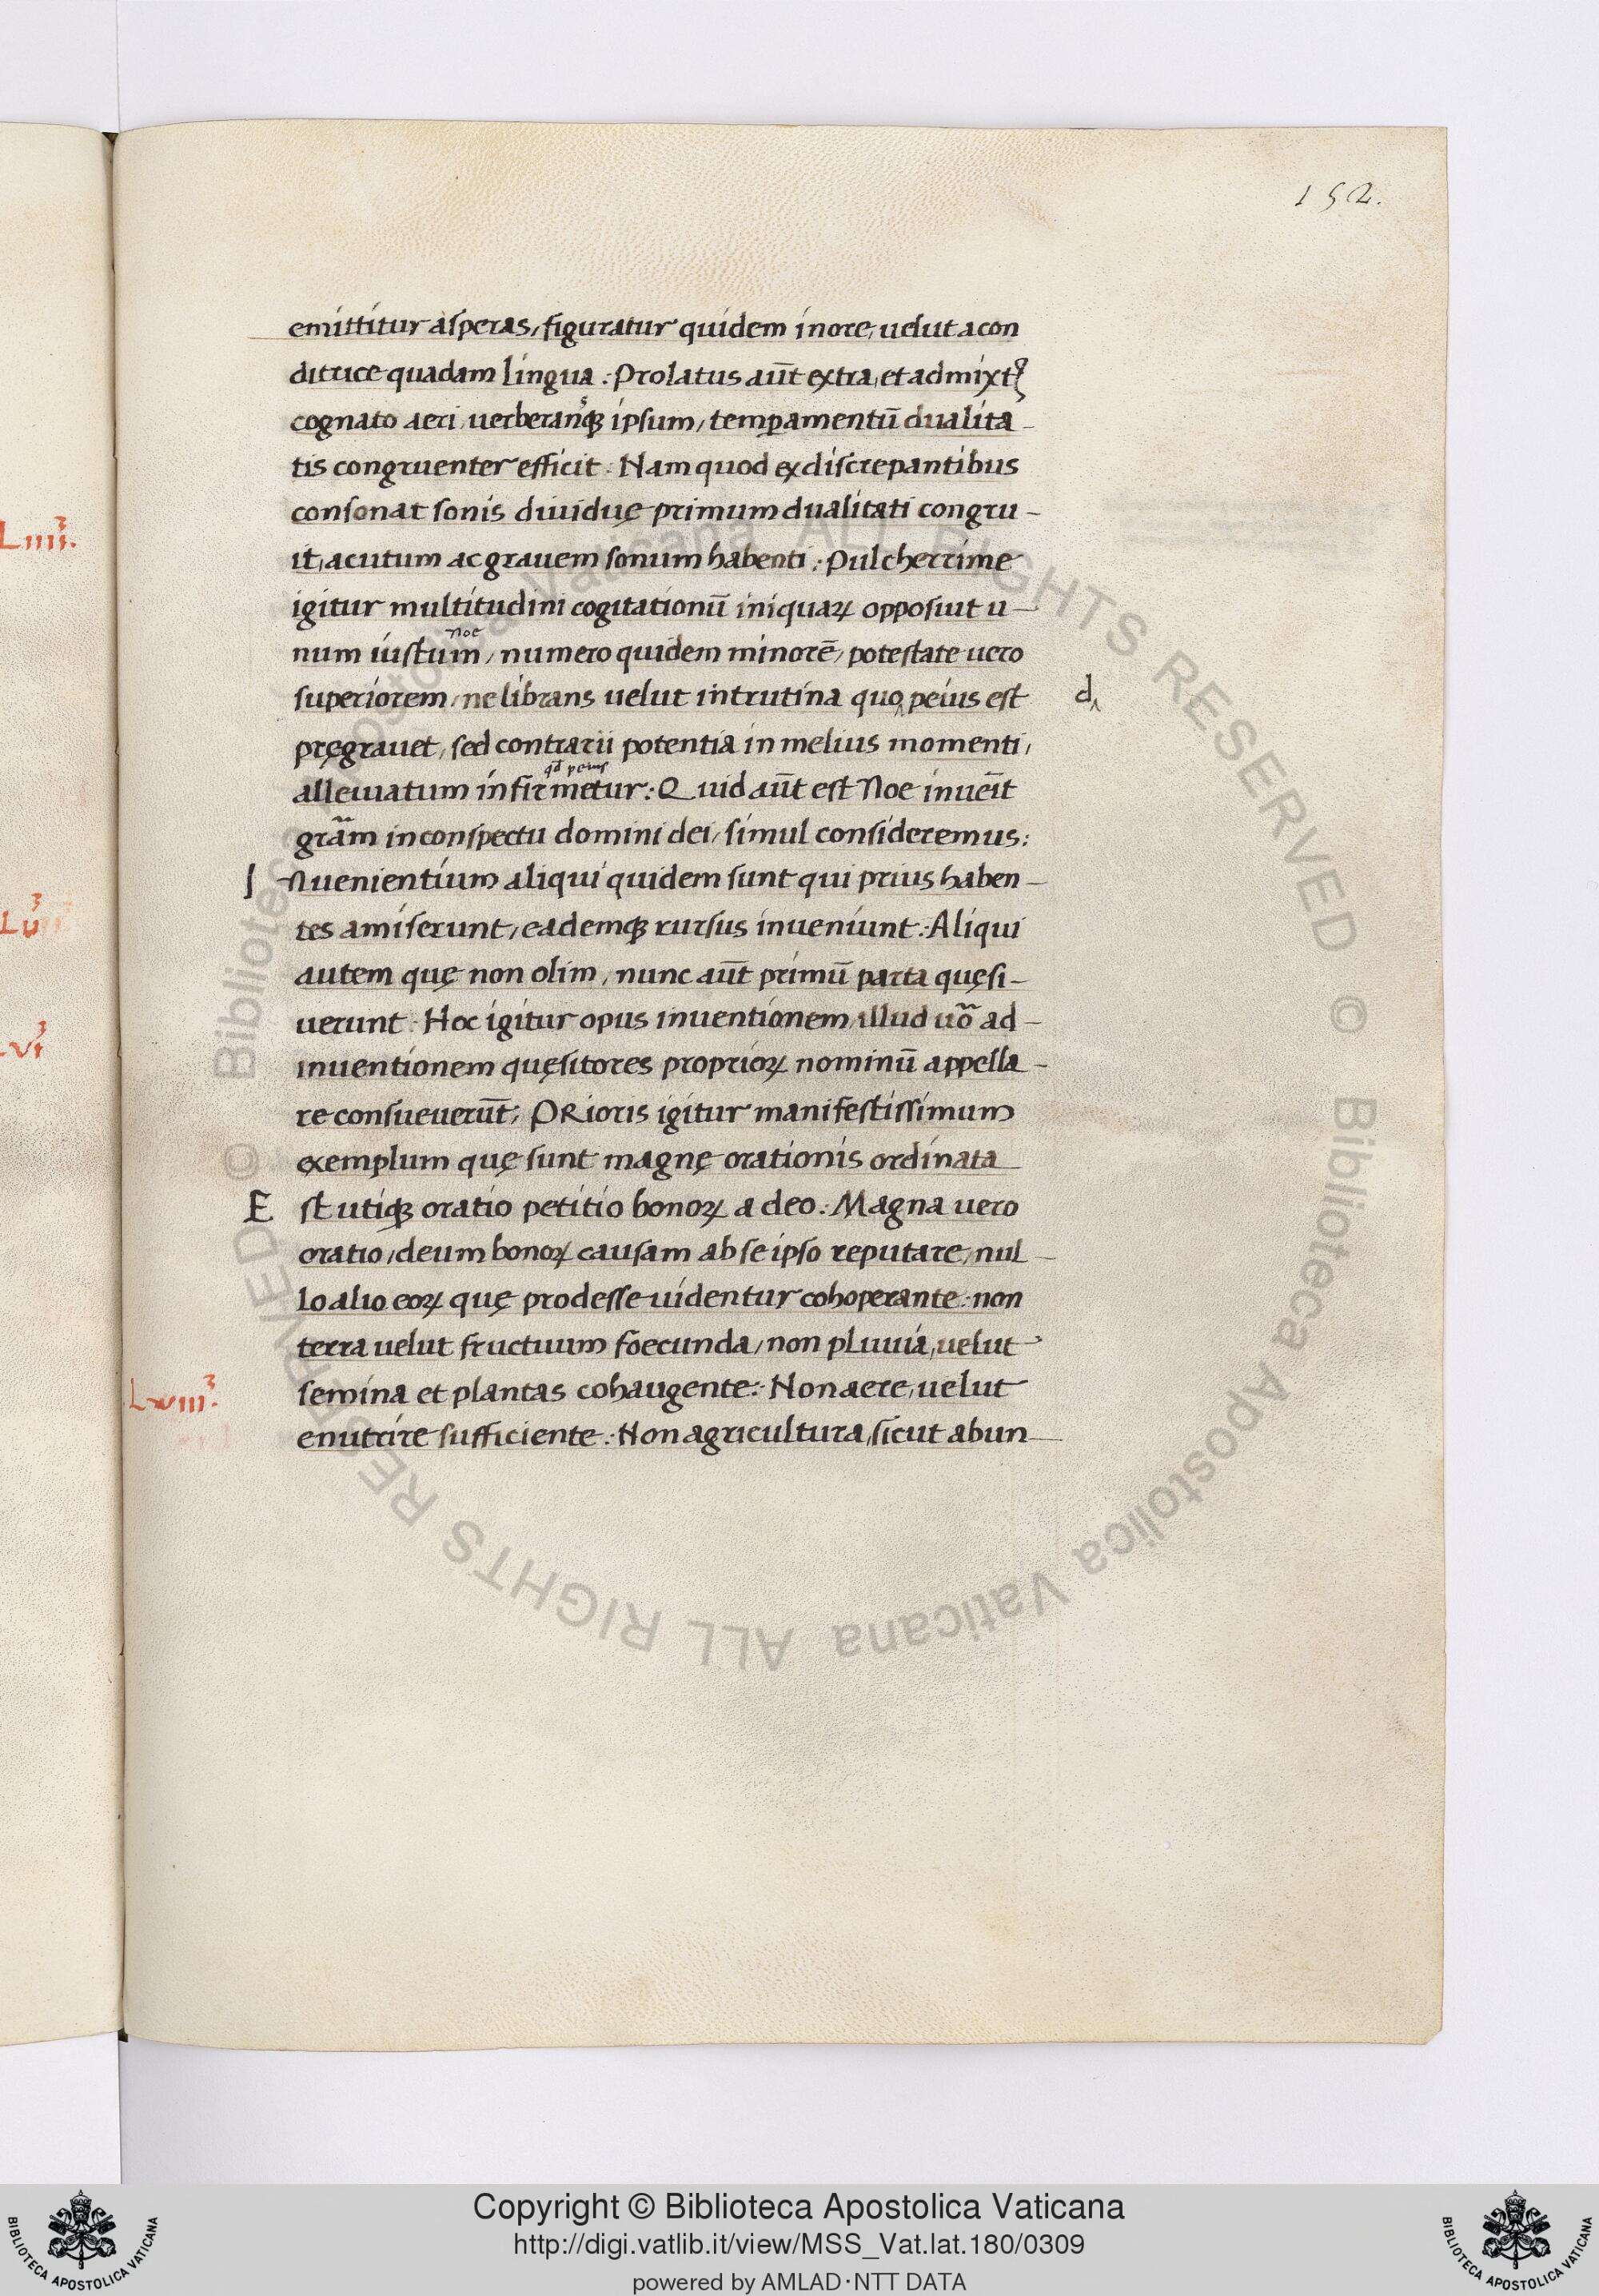 152.
emittitur asperas, figuratur quidem in ore, uelut a con
ditrice quadam lingua. Prolatus aut̄ extra, et admixtꝰ
cognato aeri uerberansqꝫ ipsum, temꝑamentū dualita-
tis congruenter efficit. Nam quod ex discrepantibus
consonat sonis diuiduę primum dualitati congru-
it, acutum ac grauem sonum habenti. Pulcherrime
igitur multitudini cogitationū iniquaꝝ opposuit u-
noe
num iustum, numero quidem minorē, potestate uero
superiorem, ne librans uelut in trutina quo‸ peius est
d‸
pręgrauet, sed contrarii potentia in melius momenti,
qd peius
alleuatum infirmetur. Quid aut̄ est Noe inueīt
gr̃am in conspectu domini dei, simul consideremus:
Inuenientium aliqui quidem sunt qui prius haben-
tes amiserunt, eademqꝫ rursus inueniunt. Aliqui
autem quę non olim, nunc aut̄ primū parta quęsi-
uerunt. Hoc igitur opus inuentionem, illud uõ ad-
inuentionem quęsitores proprioꝝ nominū appella-
re consueuerūt; PRioris igitur manifestissimum
exemplum quę sunt magnę orationis ordinata
Est utiqꝫ oratio petitio bonoꝝ a deo. Magna uero
oratio, deum bonoꝝ causam ab se ipso reputare, nul-
lo alio eoꝝ quę prodesse uidentur cohoperante: non
terra uelut fructuum foecunda, non pluuia, uelut
semina et plantas cohaugente. Non aere, uelut
enutrire sufficiente. Non agricultura, sicut abun-
Liiii.
Lvi
Lviii.
Copyright © Biblioteca Apostolica Vaticana
http://digi.vatlib.it/view/MSS_Vat.lat.180/0309
powered by AMLAD·NTT DATA
BIBLIOTECA APOSTOLICA VATICANA
BIBLIOTECA APOSTOLICA VATICANA
© Biblioteca Apostolica Vaticana ALL RIGHTS RESERVED © Biblioteca Apostolica Vaticana ALL RIGHTS RESERVED